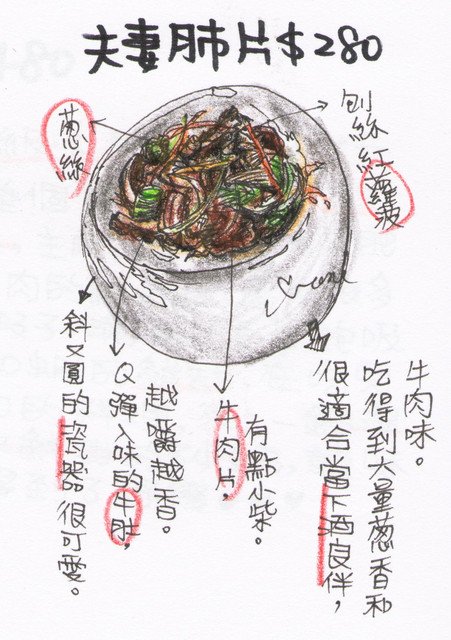 夫妻肺片$280
蔥絲
刨絲紅蘿菠
斜又圓的瓷器很可愛。
Q彈入味的牛肚，
越嚼越香。
牛肉片，
有點小柴。
很適合當下酒良伴，
吃得到大量蔥香和
牛肉味。